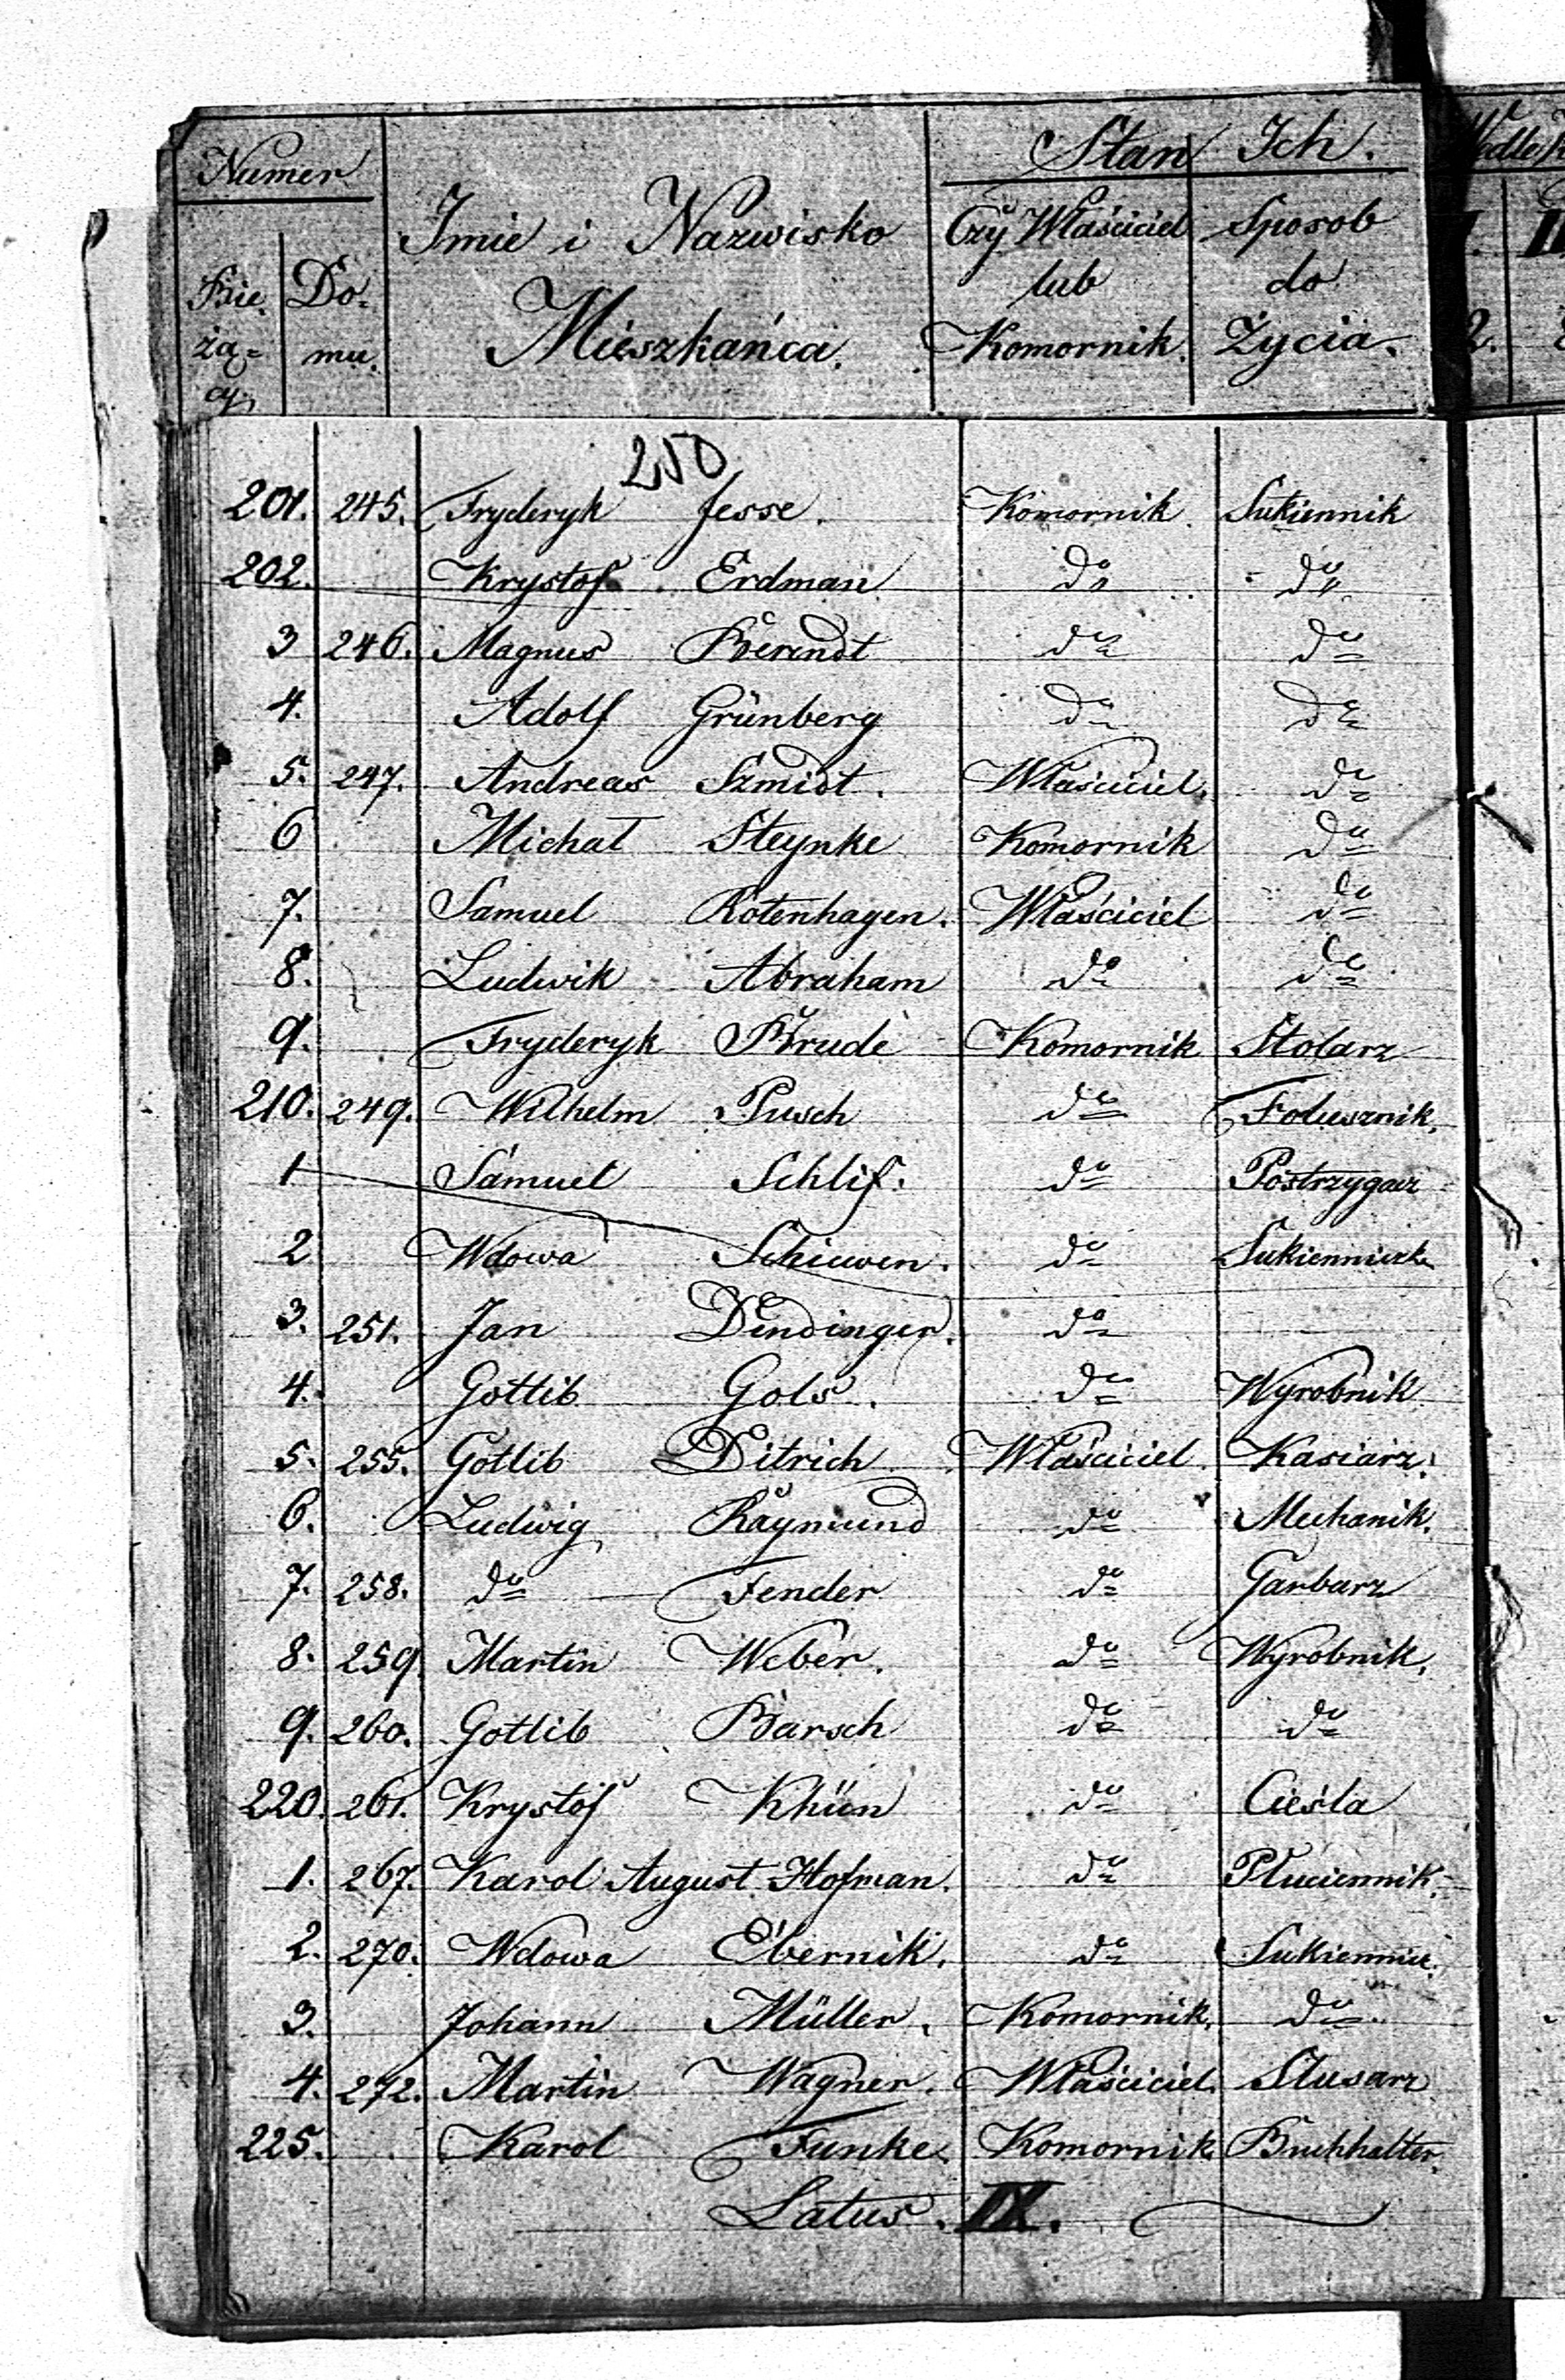 Numer Stan Ich. Wedle
Imie i Nazwisko Czy Właściciel Sposob
Bie Do= lub do
żą= mu. Mieszkańca. Komornik. Życia. 2.
cy
250
201. 245. Fryderyk Jesse. Komornik Sukiennik
202. Krystof Erdman do do
3 246. Magnus Berendt do do
4. Adolf Grünberg do do
5. 247. Andreas Szmidt. Właściciel. do
6 Michał Steynke Komornik do
7. Samuel Rotenhagen. Właściciel do
8. Ludwik Abraham do do
9. Fryderyk Brude Komornik Stolarz
210. 249. Wilhelm Pusch do Folusznik.
1 Samuel Schlif. do Postrzygacz
2 Wdowa Schiewen. do
3. 251. Jan Dendinger. do
4. Gottlib Gols. do Wyrobnik
5. 255. Gotlib Ditrich Właściciel. Kasiarz.
6. Ludwig Raymund do Mechanik.
7. 258. do Fender do Garbarz
8. 259. Martin Weber. do Wyrobnik.
9. 260. Gotlib Barsch do do
220. 261. Krystof Khün do Cieśla
1. 267. Karol August Hofman. do Płuciennik.
2. 270. Wdowa Ebernik. do
3. Johann Müller. Komornik. do
4. 272. Martin Wagner. Właściciel. Slusarz
225. Karol Funke. Komornik Buchhalter.
Latus. IX.